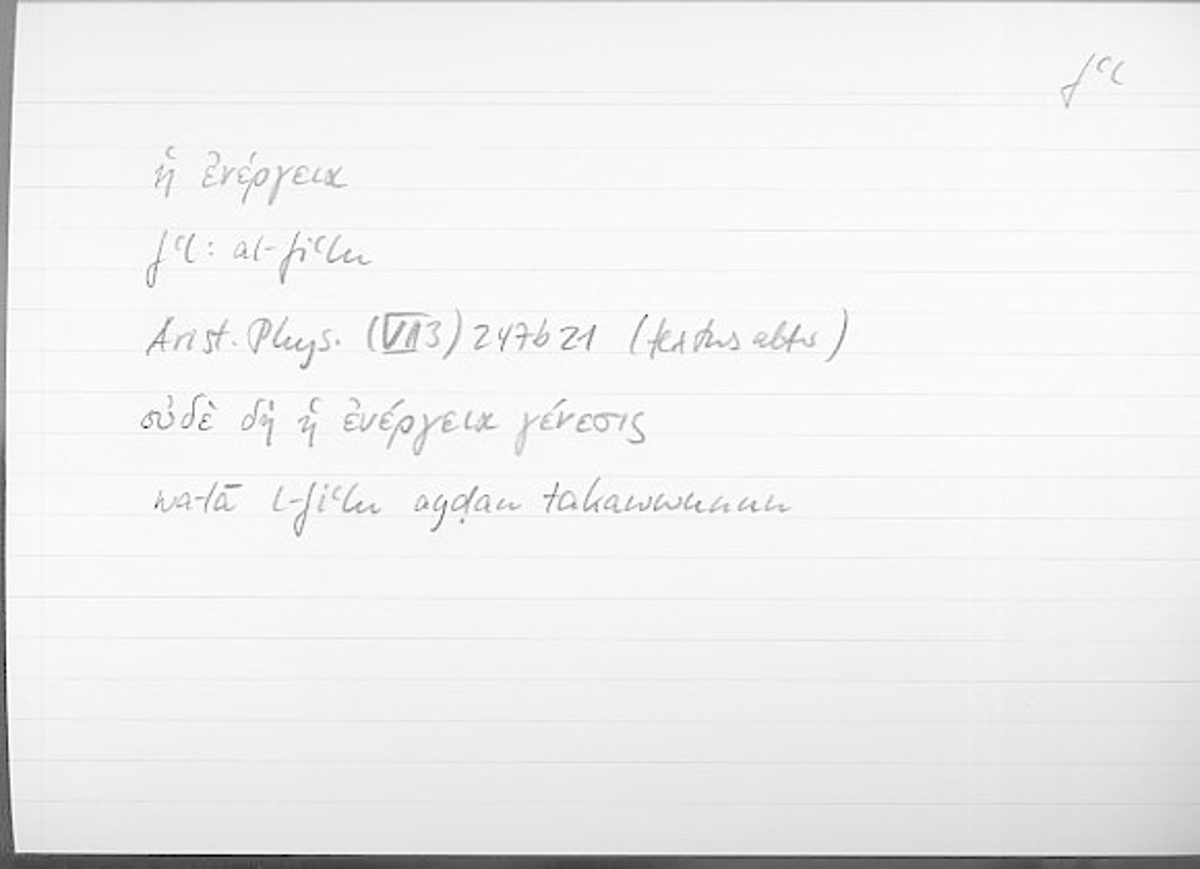 fʿl
ἡ ἐνέργεια
fʿl: al-fiʿlu
Arist. Phys. (VII 3) 247b21 (textus alter)
οὐδὲ δὴ ἡ ἐνέργεια γένεσις
wa-lā l-fiʿlu ayḍan takawwunun